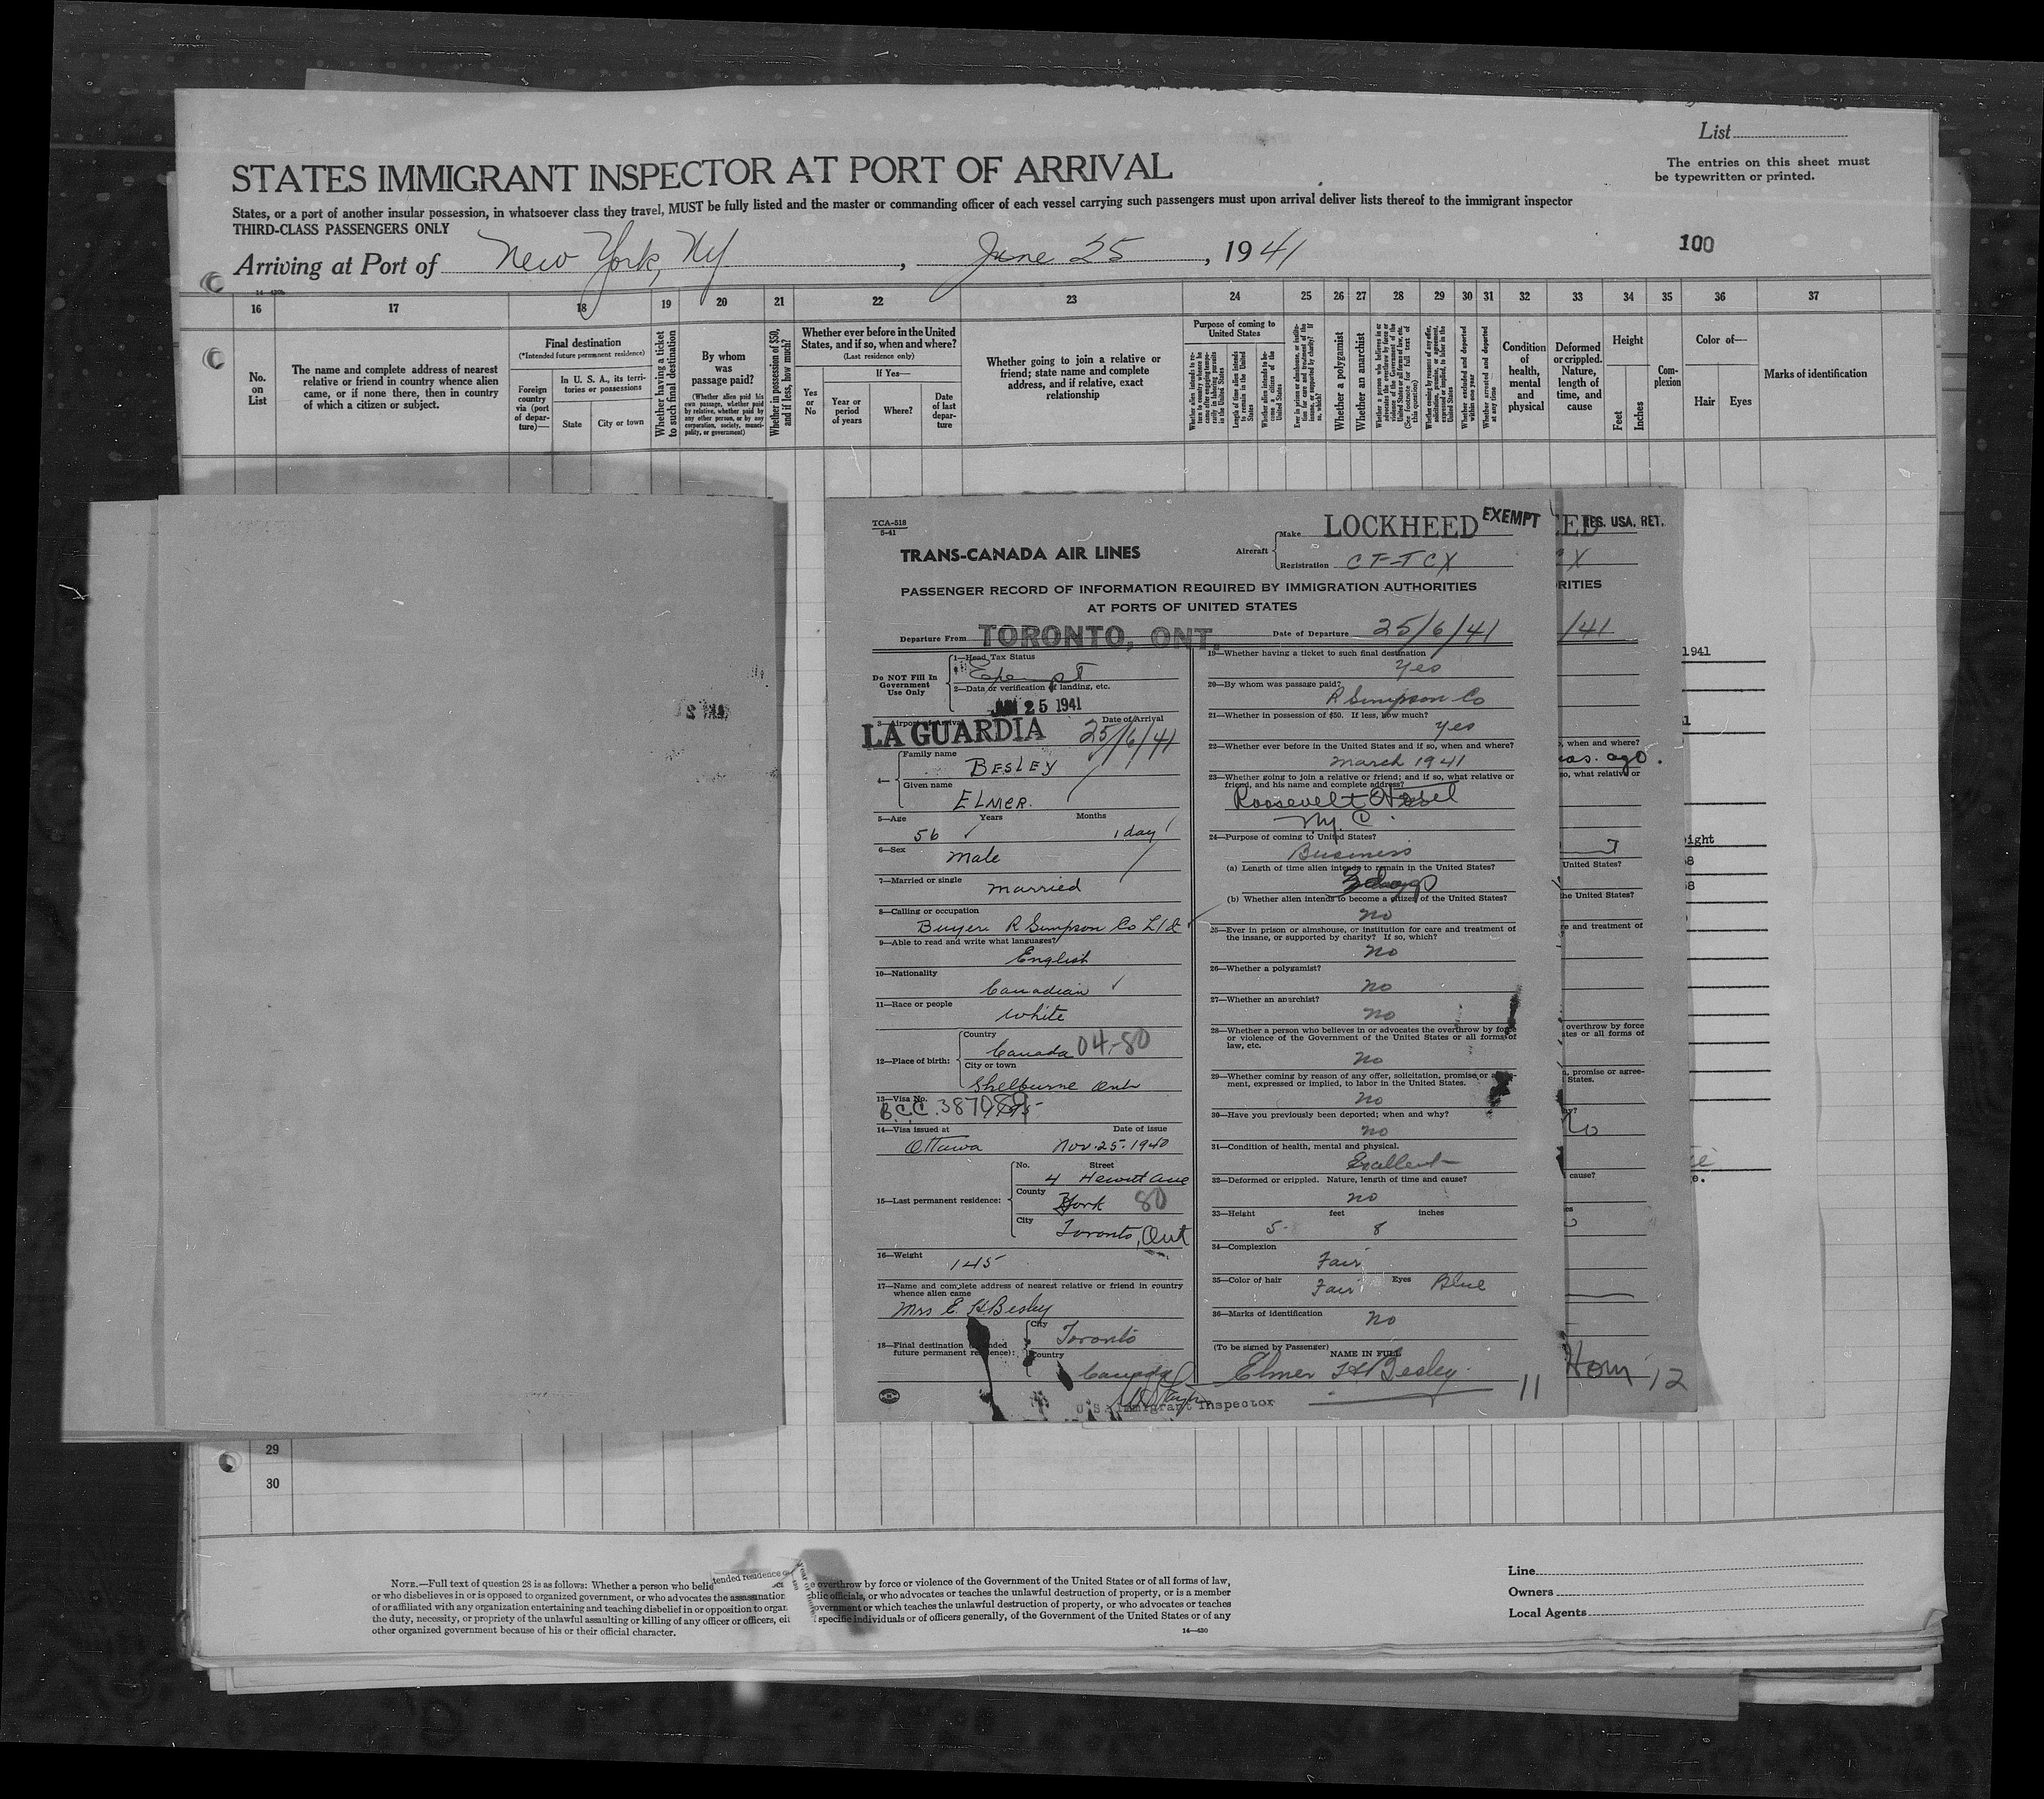 List
The entries on this sheet must
be typewritten or printed.
STATES IMMIGRANT INSPECTOR AT PORT OF ARRIVAL
States, or a port of another insular possession, in whatsoever class they travel, MUST be fully listed and the master or commanding officer of each vessel carrying such passengers must upon arrival deliver lists thereof to the immigrant inspector
THIRD-CLASS PASSENGERS ONLY
100
Arriving at Port of New York, NY, June 25, 1941
16 17 18 19 20 21 22 23 24 25 26 27 28 29 30 31 32 33 34 35 36 37
No. on List
The name and complete address of nearest
relative or friend in country whence alien
came, or if none there, then in country
of which a citizen or subject.
Final destination
(*Intended future permanent residence)
Foreign country via (port of departure)—
In U. S. A., its territories or possessions
State
City or town
Whether having a ticket to such final destination
By whom was passage paid?
(Whether alien paid his own passage, whether paid by relative, whether paid by any other person, or by any corporation, society, municipality, or government)
Whether in possession of $50, and if less, how much?
Whether ever before in the United
States, and if so, when and where?
(Last residence only)
Yes or No
If Yes—
Year or period of years
Where?
Date of last departure
Whether going to join a relative or
friend; state name and complete
address, and if relative, exact
relationship
Purpose of coming to United States
Whether a polygamist
Whether an anarchist
Whether excluded and deported within one year
Whether arrested and deported at any time
Condition of health, mental and physical
Deformed or crippled. Nature, length of time, and cause
Height
Feet
Inches
Complexion
Color of—
Hair
Eyes
Marks of identification
TCA-518
5-41
TRANS-CANADA AIR LINES
Aircraft
Make LOCKHEED
EXEMPT
Registration CF-TCX
PASSENGER RECORD OF INFORMATION REQUIRED BY IMMIGRATION AUTHORITIES
AT PORTS OF UNITED STATES
Departure From TORONTO, ONT.
Date of Departure 25/6/41
Do NOT Fill In
Government
Use Only
1—Head Tax Status
Exempt
2—Data or verification of landing, etc.
JUN 25 1941
3—Airport of Arrival
Date of Arrival
LA GUARDIA 25/6/41
4—
Family name
BESLEY
Given name
ELMER.
5—Age Years Months
56 1 day
6—Sex
Male
7—Married or single
Married
8—Calling or occupation
Buyer R Simpson Co Ltd
9—Able to read and write what languages?
English
10—Nationality
Canadian
11—Race or people
White
12—Place of birth:
Country
Canada 04-80
City or town
Shelburne Ont
13—Visa No.
B.C.C. 387089
14—Visa issued at Date of issue
Ottawa Nov. 25. 1940
15—Last permanent residence:
No. Street
4 Hewitt Ave
County
York 80
City
Toronto, Ont
16—Weight
145
17—Name and complete address of nearest relative or friend in country
whence alien came
Mrs E. H Besley
18—Final destination
future permanent
City
Toronto
Country
Canada
U S Immigrant Inspector
19—Whether having a ticket to such final destination
Yes
20—By whom was passage paid?
R Simpson Co
21—Whether in possession of $50. If less, how much?
Yes
22—Whether ever before in the United States and if so, when and where?
March 1941
23—Whether going to join a relative or friend; and if so, what relative or
friend, and his name and complete address?
Roosevelt Hotel
N.Y. C.
24—Purpose of coming to United States?
Business
(a) Length of time alien intends to remain in the United States?
3 days
(b) Whether alien intends to become a citizen of the United States?
No
25—Ever in prison or almshouse, or institution for care and treatment of
the insane, or supported by charity? If so, which?
No
26—Whether a polygamist?
No
27—Whether an anarchist?
No
28—Whether a person who believes in or advocates the overthrow by force
or violence of the Government of the United States or all forms of
law, etc.
No
29—Whether coming by reason of any offer, solicitation, promise or agree-
ment, expressed or implied, to labor in the United States.
No
30—Have you previously been deported; when and why?
No
31—Condition of health, mental and physical.
Excellent
32—Deformed or crippled. Nature, length of time and cause?
No
33—Height feet inches
5 8
34—Complexion
Fair
35—Color of hair Eyes
Fair Blue
36—Marks of identification
No
(To be signed by Passenger)
NAME IN FULL
Elmer H Besley
11
ED
RES. USA. RET.
X
RITIES
/41
, when and where?
ago.
so, what relative or
United States?
the United States?
re and treatment of
overthrow by force
ates or all forms of
, promise or agree-
States.
cause?
12
1941
29
30
NOTE.—Full text of question 28 is as follows: Whether a person who belie
tended residence
overthrow by force or violence of the Government of the United States or of all forms of law,
or who disbelieves in or is opposed to organized government, or who advocates the assassination
blic officials, or who advocates or teaches the unlawful destruction of property, or is a member
of or affiliated with any organization entertaining and teaching disbelief in or opposition to organ
government or which teaches the unlawful destruction of property, or who advocates or teaches
the duty, necessity, or propriety of the unlawful assaulting or killing of any officer or officers, eit
specific individuals or of officers generally, of the Government of the United States or of any
other organized government because of his or their official character.
14—430
Line
Owners
Local Agents